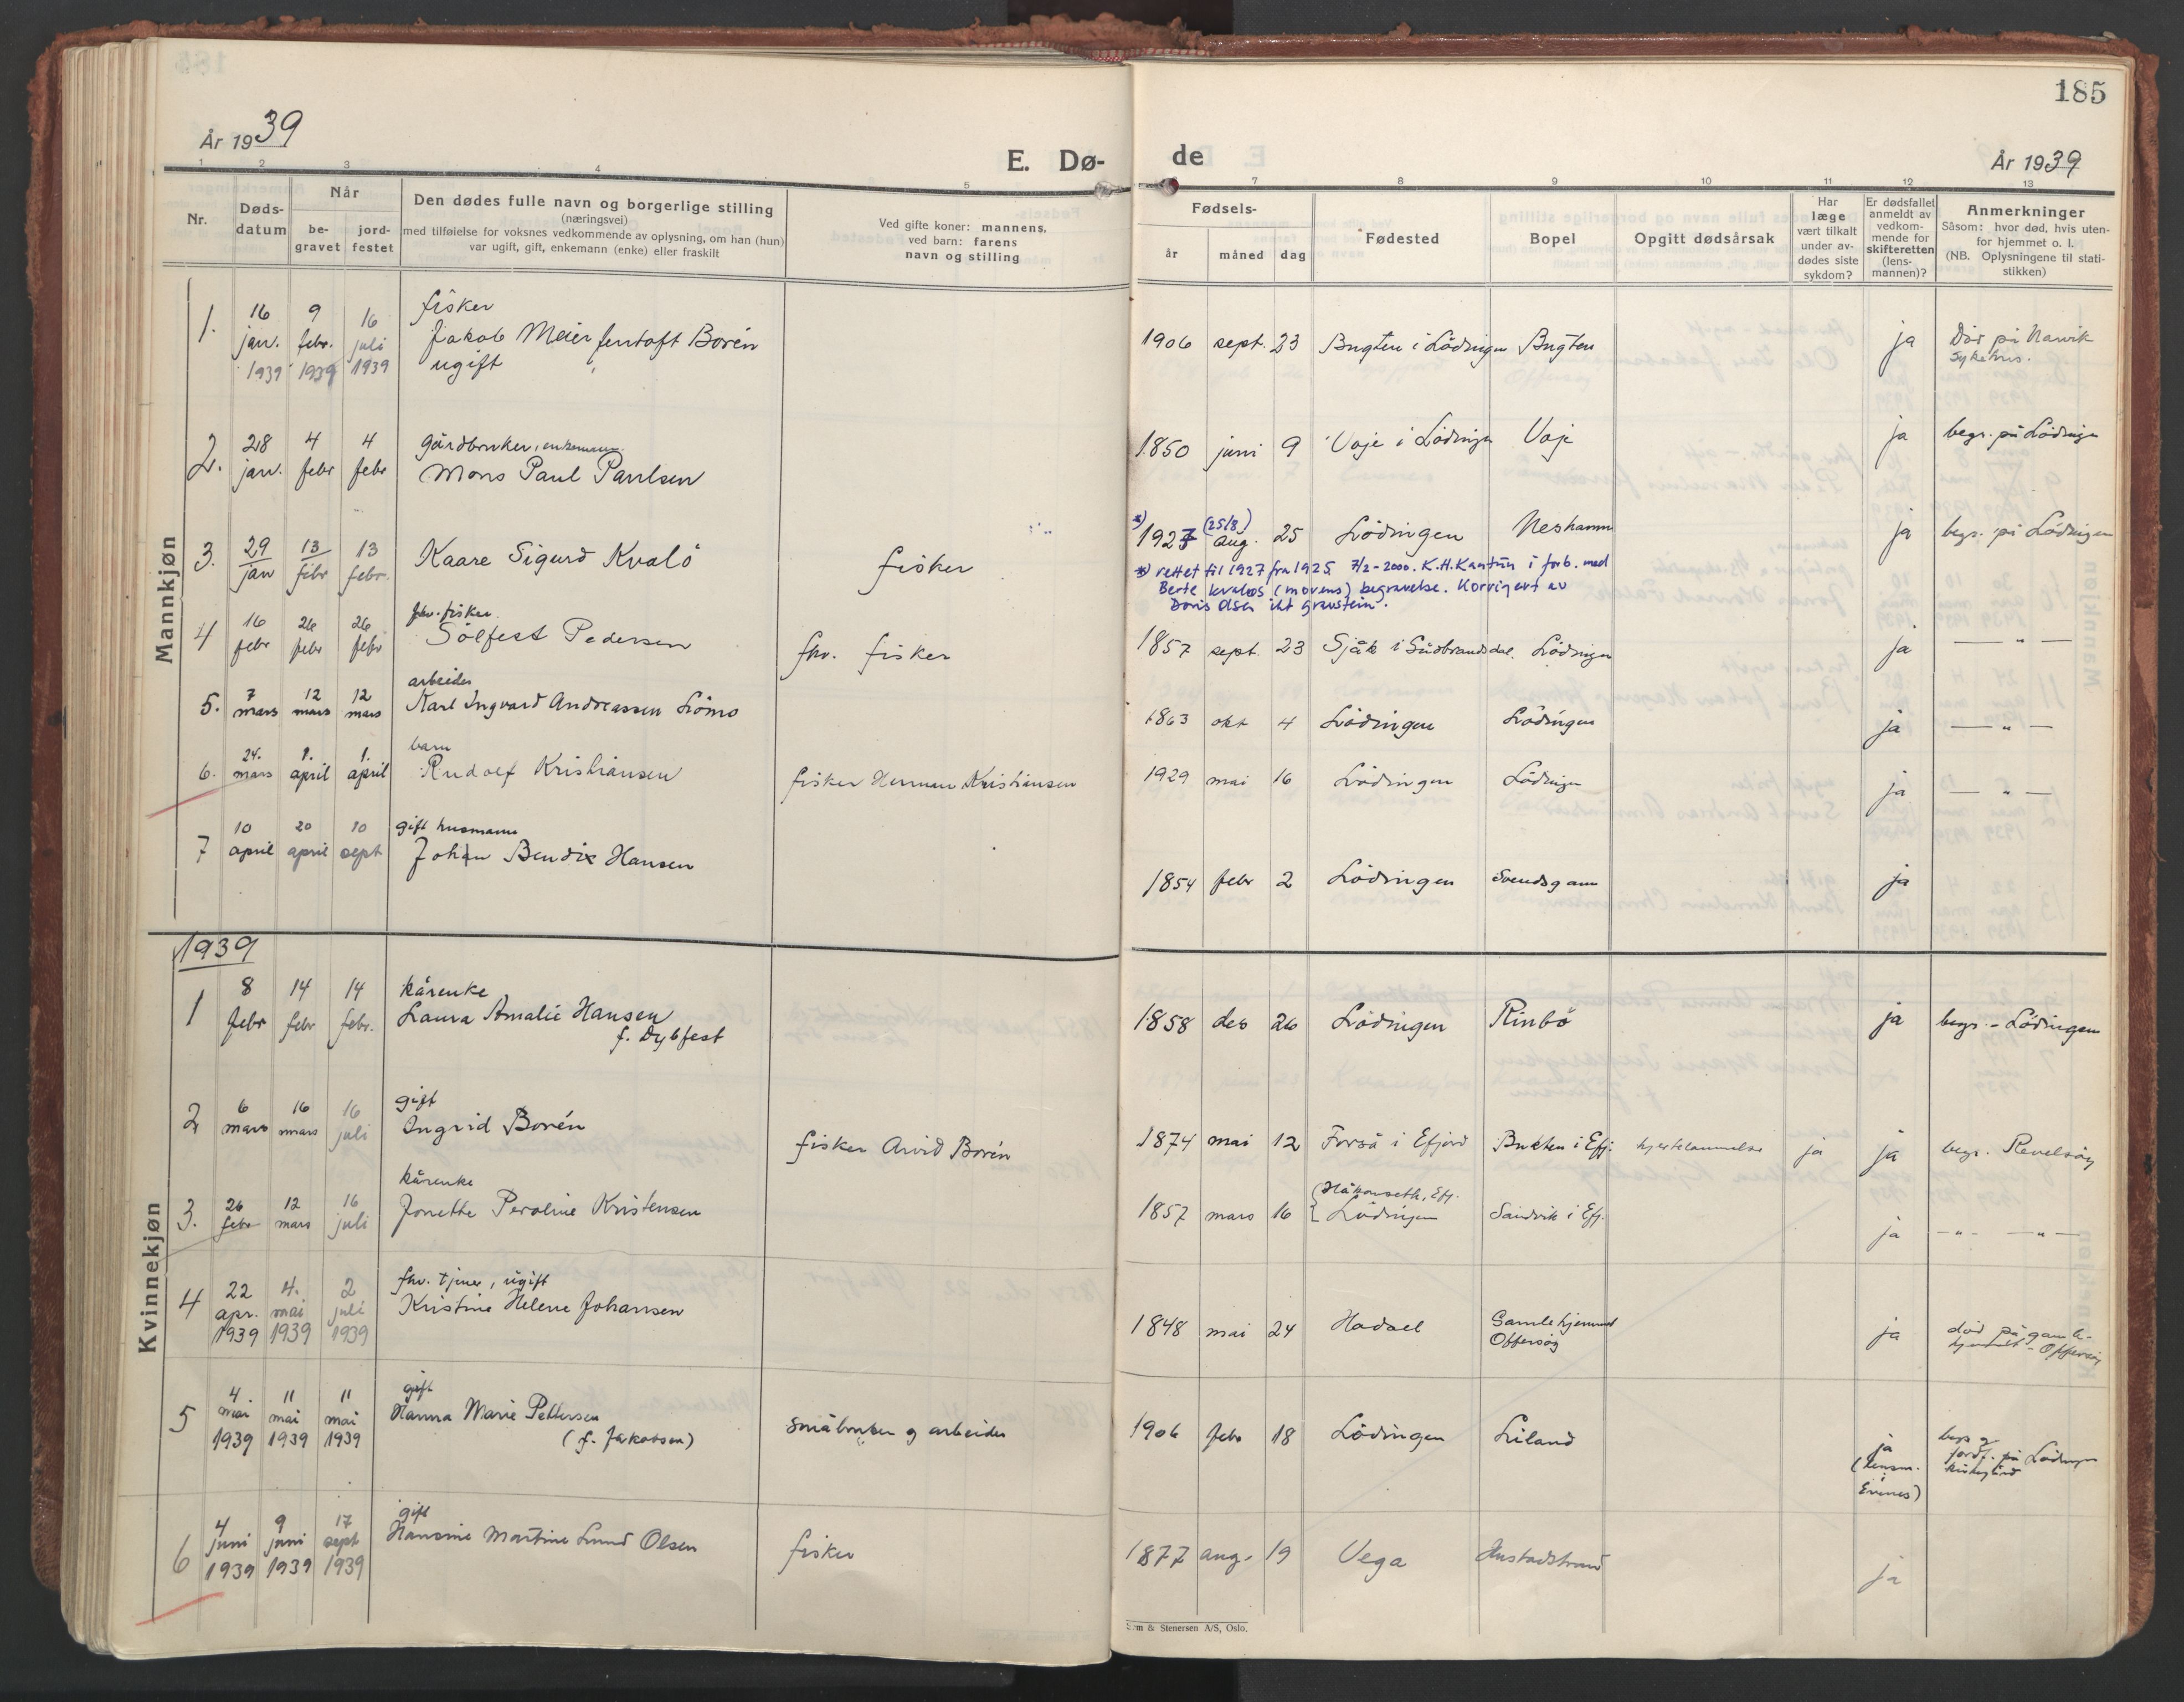 185
År 1939
E. Dø-
de
År 1939
1 2 3 4 5
7 8 9 10 11 12 13
Nr.
Døds-
datum
Når
be-
gravet
jord-
festet
Den dødes fulle navn og borgerlige stilling
(næringsvei)
med tilføielse for voksnes vedkommende av oplysning, om han (hun)
var ugift, gift, enkemann (enke) eller fraskilt
Ved gifte koner: mannens,
ved barn: farens
navn og stilling
Fødsels-
år måned dag
Fødested
Bopel
Opgitt dødsårsak
Har
læge
vært tilkalt
under av-
dødes siste
sykdom?
Er dødsfallet
anmeldt av
vedkom-
mende for
skifteretten
(lens-
mannen)?
Anmerkninger
Såsom: hvor død, hvis uten-
for hjemmet o. l.
(NB. Oplysningene til stati-
stikken)
Mannkjøn
1. 16 jan. 1939 9 febr. 1939 16 juli 1939
fisker
Jakob Meier Jentoft Borén
ugift
1906 sept. 23 Bugten i Lödingen Bugten ja Död på Narvik
Sykehus.
2. 28 jan. 4 febr 4 febr
Gårdbruker, enkemann.
Mons Paul Paulsen
1850 juni 9 Voje i Lödingen Voje ja begr. på Lödingen
3. 29 jan 13 febr 13 febr.
Kaare Sigurd Kvalö
fisker
*) 1927 (25/8) aug. 25 Lödingen Neshamn ja begr. på Lödingen
*) rettet til 1927 fra 1925 7/2-2000. K.H. i forb. med
Berte Kvaløs (morens) begravelse. Korrigert av
Doris Olsen iht gravstein.
4 16 febr 26 febr 26 febr
fhv. fisker
Sölfest Pedersen
fhv. fisker
1857 sept. 23 Sjåk i Gudbrandsdal. Lödingen ja — " —
5. 7 mars 12 mars 12 mars
arbeider
Karl Ingvard Andreassen Lömo
1863 okt 4 Lödingen Lödingen ja — " —
6. 24. mars 1. april 1. april
barn
Rudolf Kristiansen
fisker Herman Kristiansen
1929 mai 16 Lödingen Lödingen ja — " —
7 10 april 20 april 10 sept
gift husmann
Johan Bendix Hansen
1854 febr 2 Lödingen Svendsgam ja
1939
Kvinnekjøn
1 8 febr 14 febr 14 febr.
kårenke
Laura Amalie Hansen
f. Dybfest
1858 des 26 Lödingen Rinbö ja begr. - Lödingen
2 6 mars 16 mars 16 juli
gift
Ingrid Borén
fisker Arvid Borén
1874 mai 12 Forså i Efjord Bukten i Efj. hjertelammelse ja ja begr. Revelsöy
3. 26 febr 12 mars 16 juli
kårenke
Jonette Peroline Kristensen
1857 mars 16 Håkonseth, Efj.
Lödingen Sandvik i Efj. ja — " — — " —
4 22 apr. 1939 4. mai 1939 2 juli 1939
fhv. tjener, ugift
Kristine Helene Johansen
1848 mai 24 Hadsel Gamlehjemmet
Offersöy ja död på gamle-
hjemmet - Offersöy
5 4 mai 1939 11 mai 1939 11 mai 1939
gift
Hanna Marie Pettersen
(f. Jakobsen)
småbruker og arbeider
1906 febr 18 Lödingen Liland ja
(lensm.
i
Evenes) begr. og
jordf. på Lödingen
kirkegård
6 4 juni 1939 9 juni 1939 17 sept 1939
gift
Hansine Martine Lund Olsen
fisker
1877 aug. 19 Vega Hustadstrand ja
Sem & Stenersen A/S, Oslo.